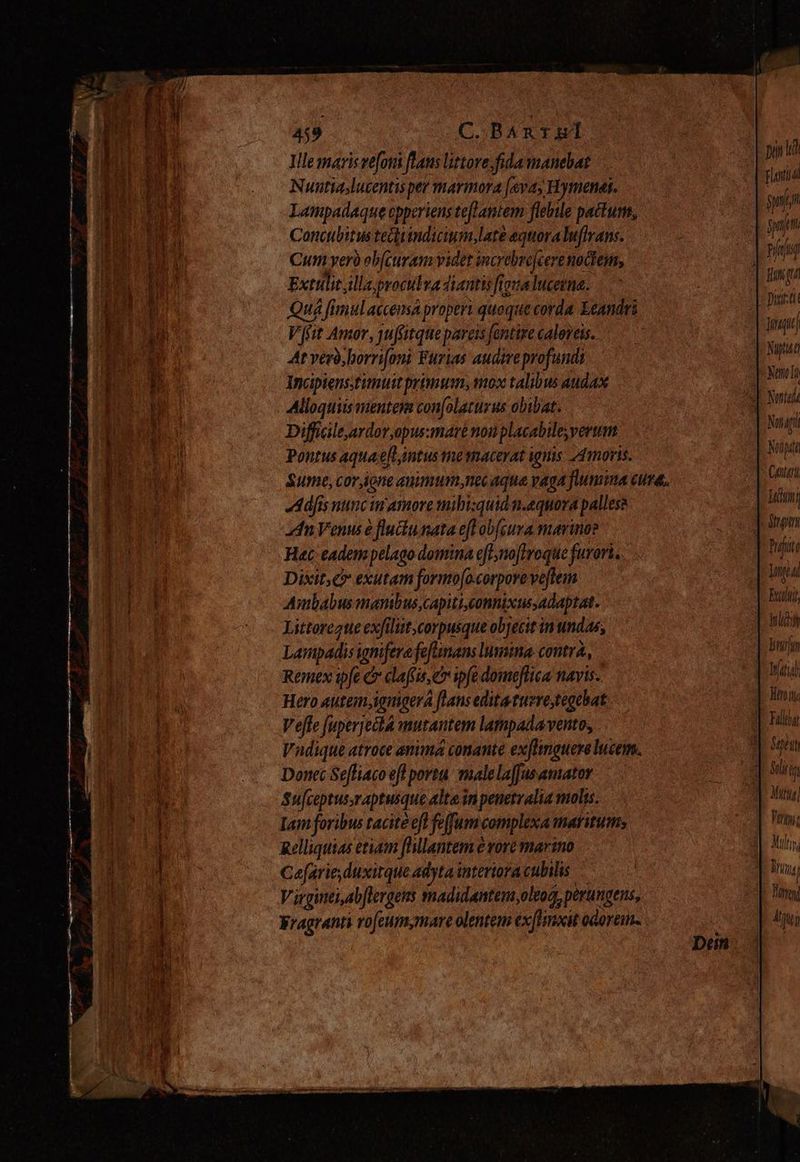 459 C. BARTHI
Ille maris veſoni ſtans littore, fida manebat
Nuntia, lucentis per marmora ſæva, Hymenæi.
Lampadaque opperiens teſtantem flebile pactum,
Concubitus tecti indicium, latè æquora luſtrans.
Cum verò obſcuram videt increbreſcere noctem,
Extulit, illa, procul radiantis ſigna lucernæ.
Quá ſimul accensá properi quoque corda Leandri
Vſſit Amor, juſſitque pareis ſentire caloreis.
At verò, horriſoni Furias audire profundi
Incipiens, timuit primum, mox talibus audax
Alloquiis mentem conſolaturus obibat.
Difficile, ardor, opus: mare non placabile, verum
Pontus aqua eſt, intus me macerat ignis Amoris.
Sume, cor, igne animum, nec aquæ vaga flumina cura.
Adſis nunc in amore mihi: quid n. æquora palles?
An Venus è fluctu nata eſt obſcura marino?
Hæc eadem pelago domina eſt, noſtroque furori.
Dixit, & exutam formoſo corpore veſtem
Ambabus manibus, capiti, connixus, adaptat.
Littoreque exſiliit, corpusque objecit in undas,
Lampadis igniferæ feſtinans lumina contrà,
Remex ipſe & claſſis, & ipſe domeſtica navis.
Hero autem, ignigerá ſtans edita turre, tegebat
Veſte ſuperjectá mutantem lampada vento,
Vndique atroce animá conante exſtinguere lucem.
Donec Seſtiaco eſt portu male laſſus amator
Suſceptus, raptusque alta in penetralia molis.
Iam foribus tacitè eſt feſſum complexa maritum,
Relliquias etiam ſtillantem è rore marino
Cæſarie, duxitque adyta interiora cubilis
Virginei, abſtergens madidantem, oleoq; perungens,
Fragranti roſeum, mare olentem exſtinxit odorem.
Dein